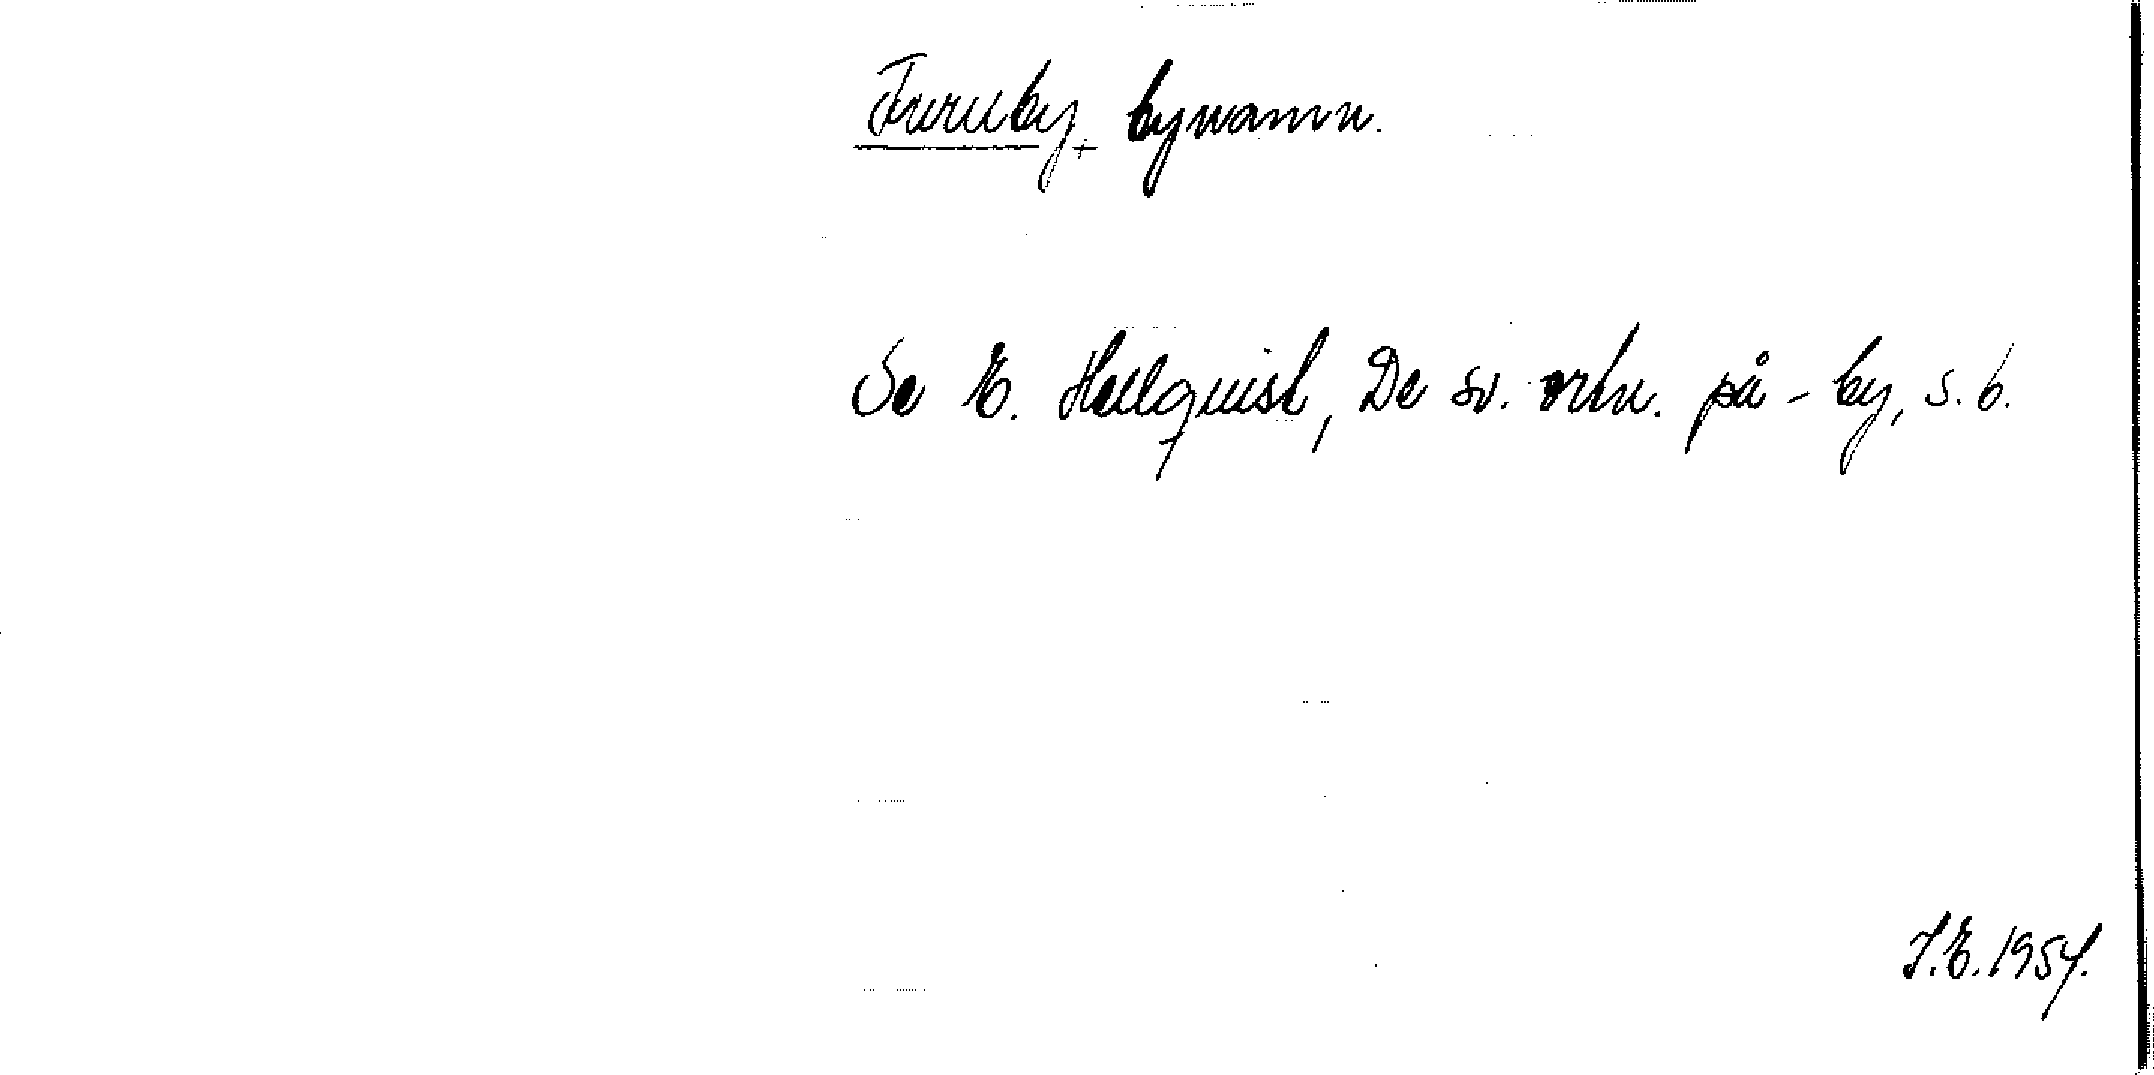 Furuby, bynamn.
Se E. Hellquist, De sv. ortn. på -by, s. 6.
I.E. 1954.